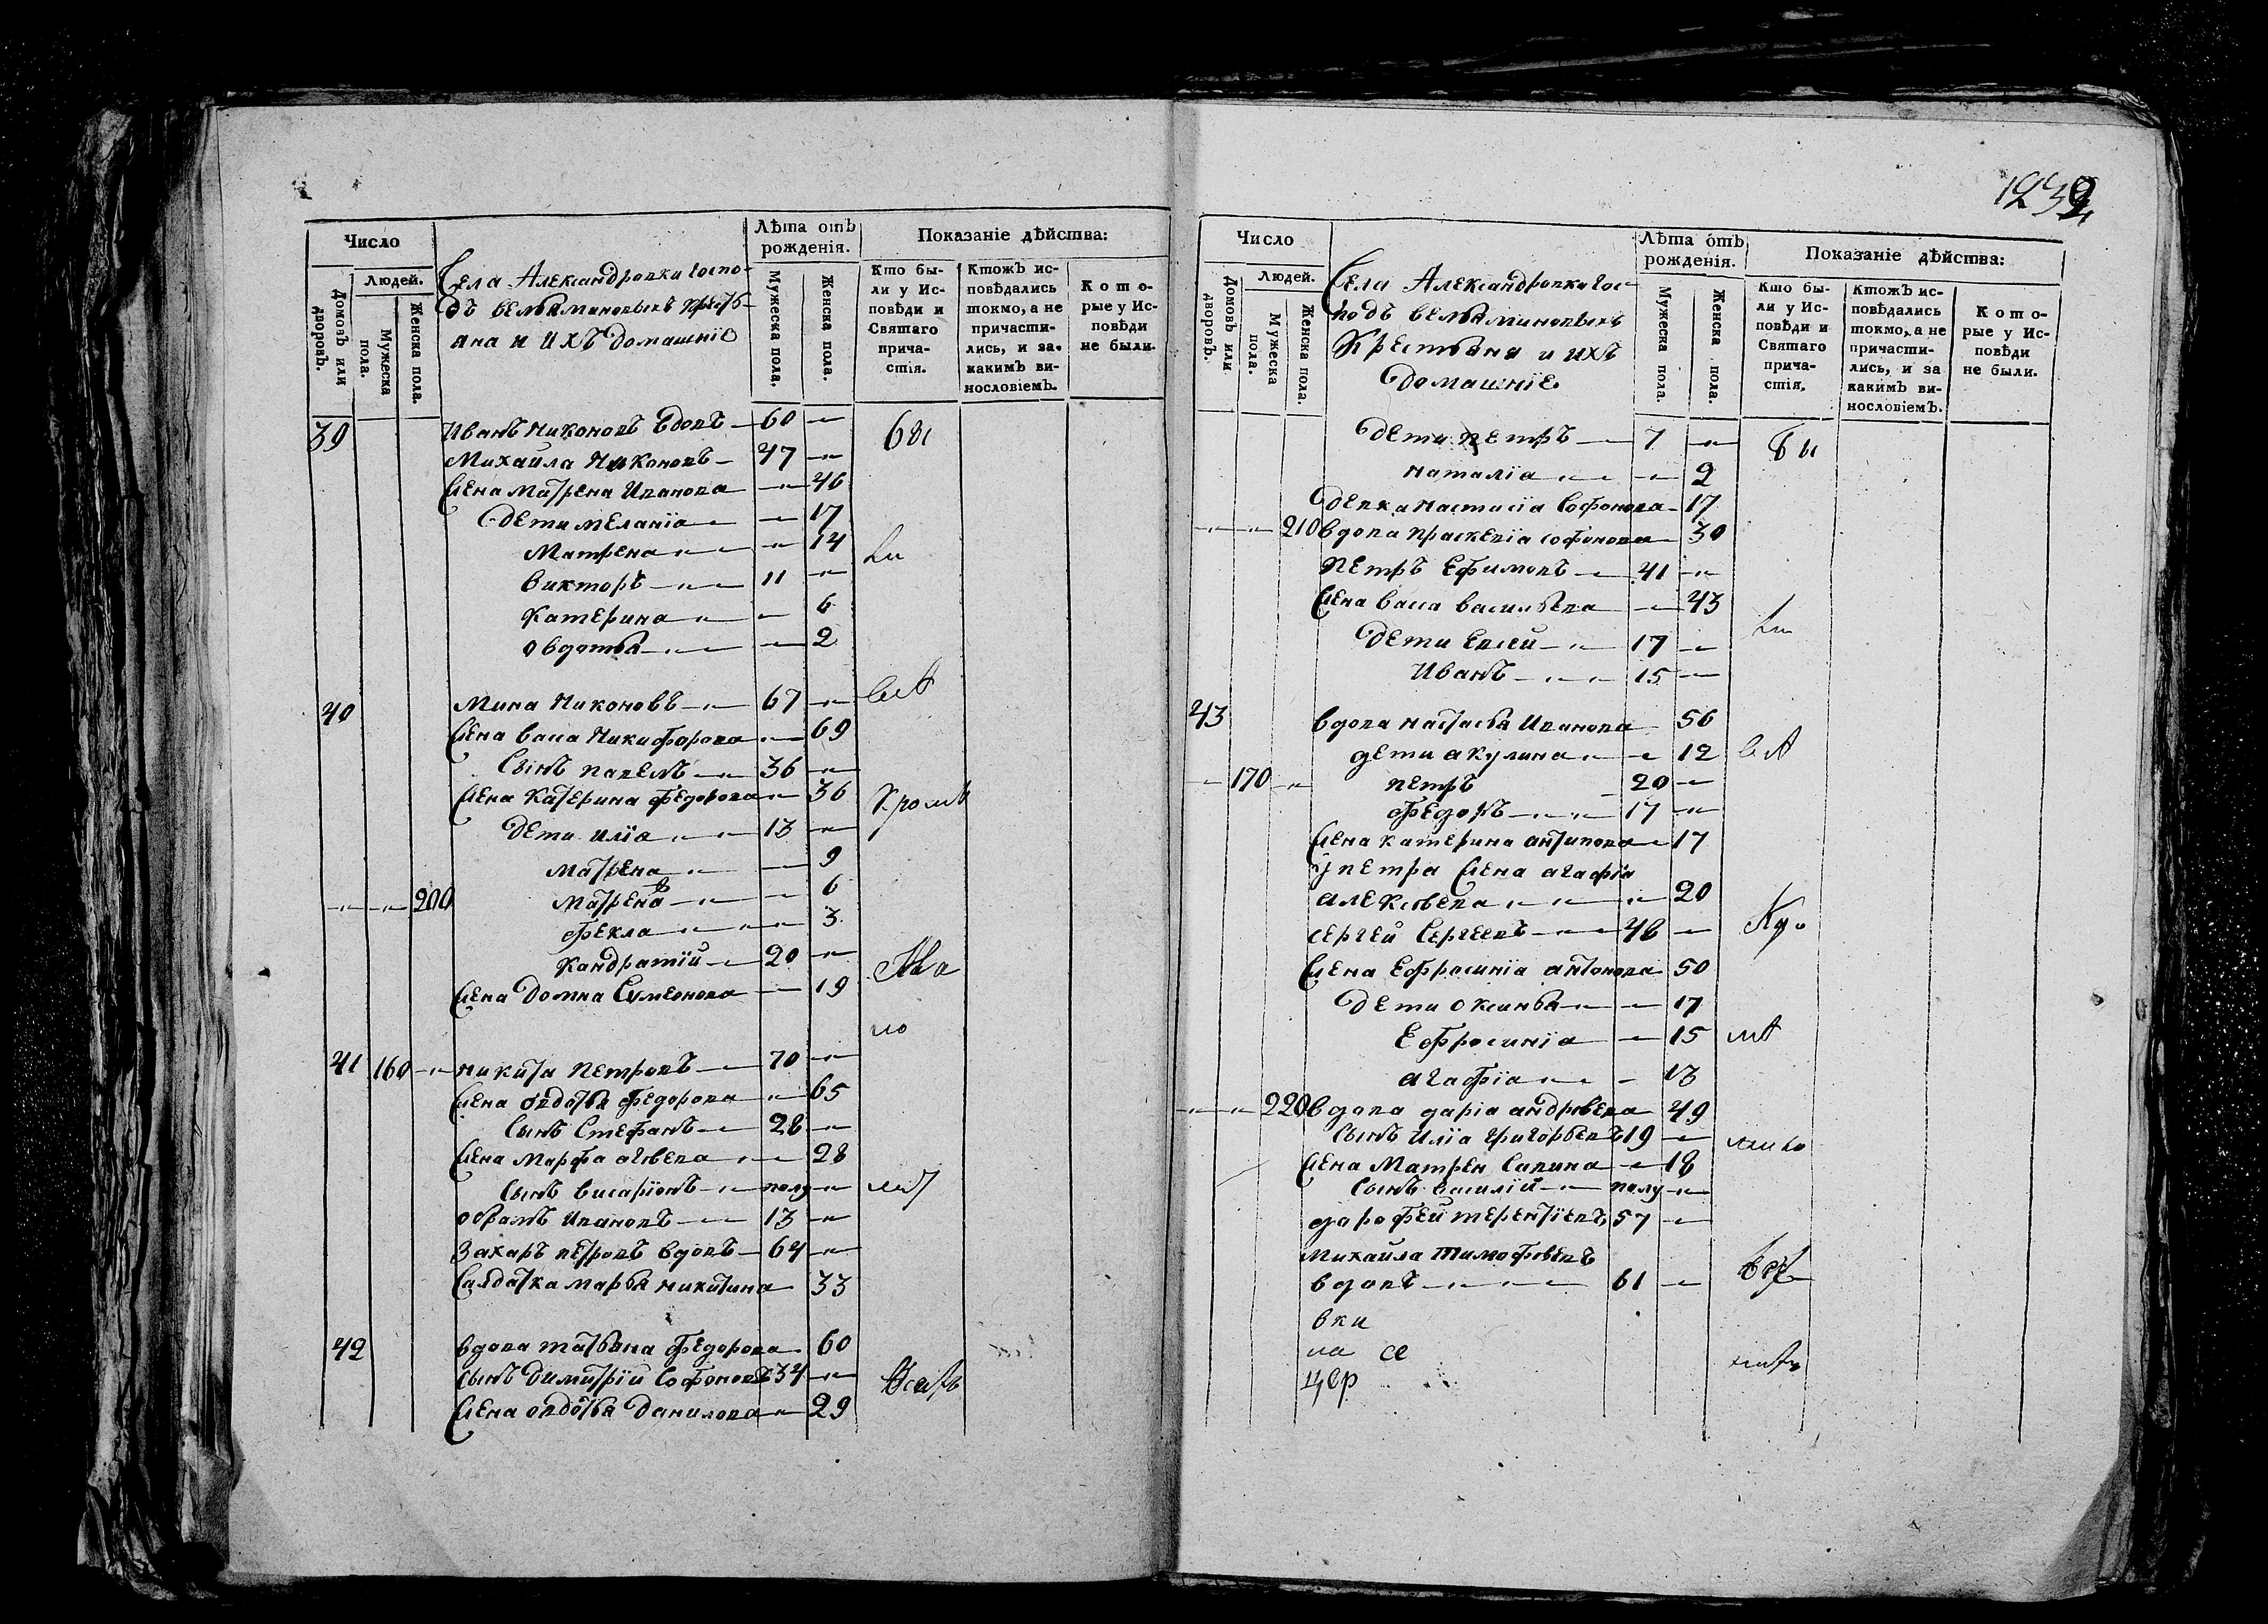 1232
Число
Людей.
Домовъ или дворовъ.
Мужеска пола.
Женска пола.
Села Александровки госпо-
дъ Вельяминовыхъ крестъ-
яна и ихъ домашнiе
Лѣта отъ рожденiя.
Мужеска пола.
Женска пола.
Показанiе дѣйства:
Кто бы-
ли у Ис-
повѣди и
Святаго
прича-
стiя.
Ктожъ ис-
повѣдались
токмо, а не
причасти-
лись, и за
какимъ ви-
нословiемъ.
Кото-
рые у Ис-
повѣди
не были.
39 Иванъ Никоновъ вдовъ 60 бы
Михайла Никоновъ 47
Жена Матрена Иванова 46
Дети Меланiа 17
Матрена 14 ли
Викторъ 11
Катерина 6
Овдотья 2
40 Мина Никоновъ 67 всѣ
Жена Васа Никифорова 69
Сынъ Павелъ 36
Жена Катерина Федорова 36 кромѣ
Дети Илiа 13
Матрена 9
200 Матрена 6
Фекла 3
Кандратiй 20 Ма
Жена Домна Сумеонова 19
ло
41 160 Никита Петровъ 70
Жена Овдотья Федорова 65
Сынъ Стефанъ 28
Жена Марфа агѣева 28
Сынъ Висарiонъ полу лѣт
обрамъ Ивановъ 13
Захаръ Петровъ вдовъ 64
Салдатка Марья Никитина 33
42 вдова Татьяна Федорова 60
Сынъ Димитрiй Софоновъ 34
Жена Овдотья Данилова 29
Число
Людей.
Домовъ или дворовъ.
Мужеска пола.
Женска пола.
Села Александровки гос-
подъ Вельяминовыхъ
Крестьяна и ихъ
домашнiе
Лѣта отъ рожденiя.
Мужеска пола.
Женска пола.
Показанiе дѣйства:
Кто бы-
ли у Ис-
повѣди и
Святаго
прича-
стiя.
Ктожъ ис-
повѣдались
токмо, а не
причасти-
лись, и за
какимъ ви-
нословiемъ.
Кото-
рые у Ис-
повѣди
не были.
Дети Петръ 7 бы
Наталiа 2
девка Настасiа Софонова 17
210 вдова Праскевiа Софонова 30
Петръ Ефимовъ 41
Жена Васа Васильева 43
ли
Дети Евсей 17
Иванъ 15
43 вдова Настасья Иванова 56
дети акулина 12 всѣ
170 Петръ 20
Федоръ 17
Жена Катерина антипова 17
у Петра Жена агафiя
алексѣева 20
Сергей Сергеевъ 48
Жена Ефросинiа антонова 50
Дети Оксинья 17
Ефросинiа 15 мѣ
агафiа 13
220 вдова дарiа андрѣева 49
Сынъ Илiа Григорьевъ 19
Жена Матрен Савина 18
Сынъ Василiй полу
дорофей терентiевъ 57
Михайла Тимофѣевъ
вдовъ 61
вки
на се
цер